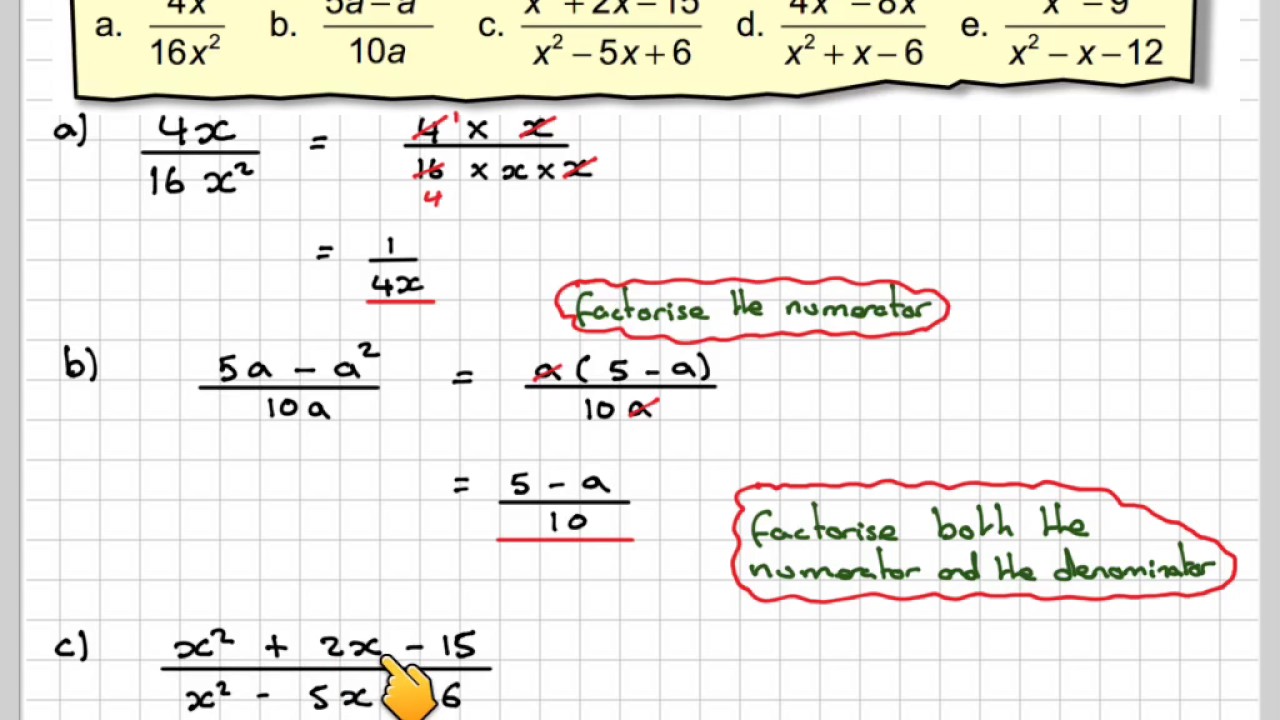 a. 4x / 16x² b. 5a – a / 10a c. x + 2x – 15 / x² – 5x + 6 d. 4x – 8x / x² + x – 6 e. x – 9 / x² – x – 12
a) 4x / 16 x² = 4 1 × x / 16 4 × x × x
= 1 / 4x
factorise the numerator
b) 5a – a² / 10a = a ( 5 – a) / 10 a
= 5 – a / 10
factorise both the
numerator and the denominator
c) x² + 2x – 15 / x² – 5x 6